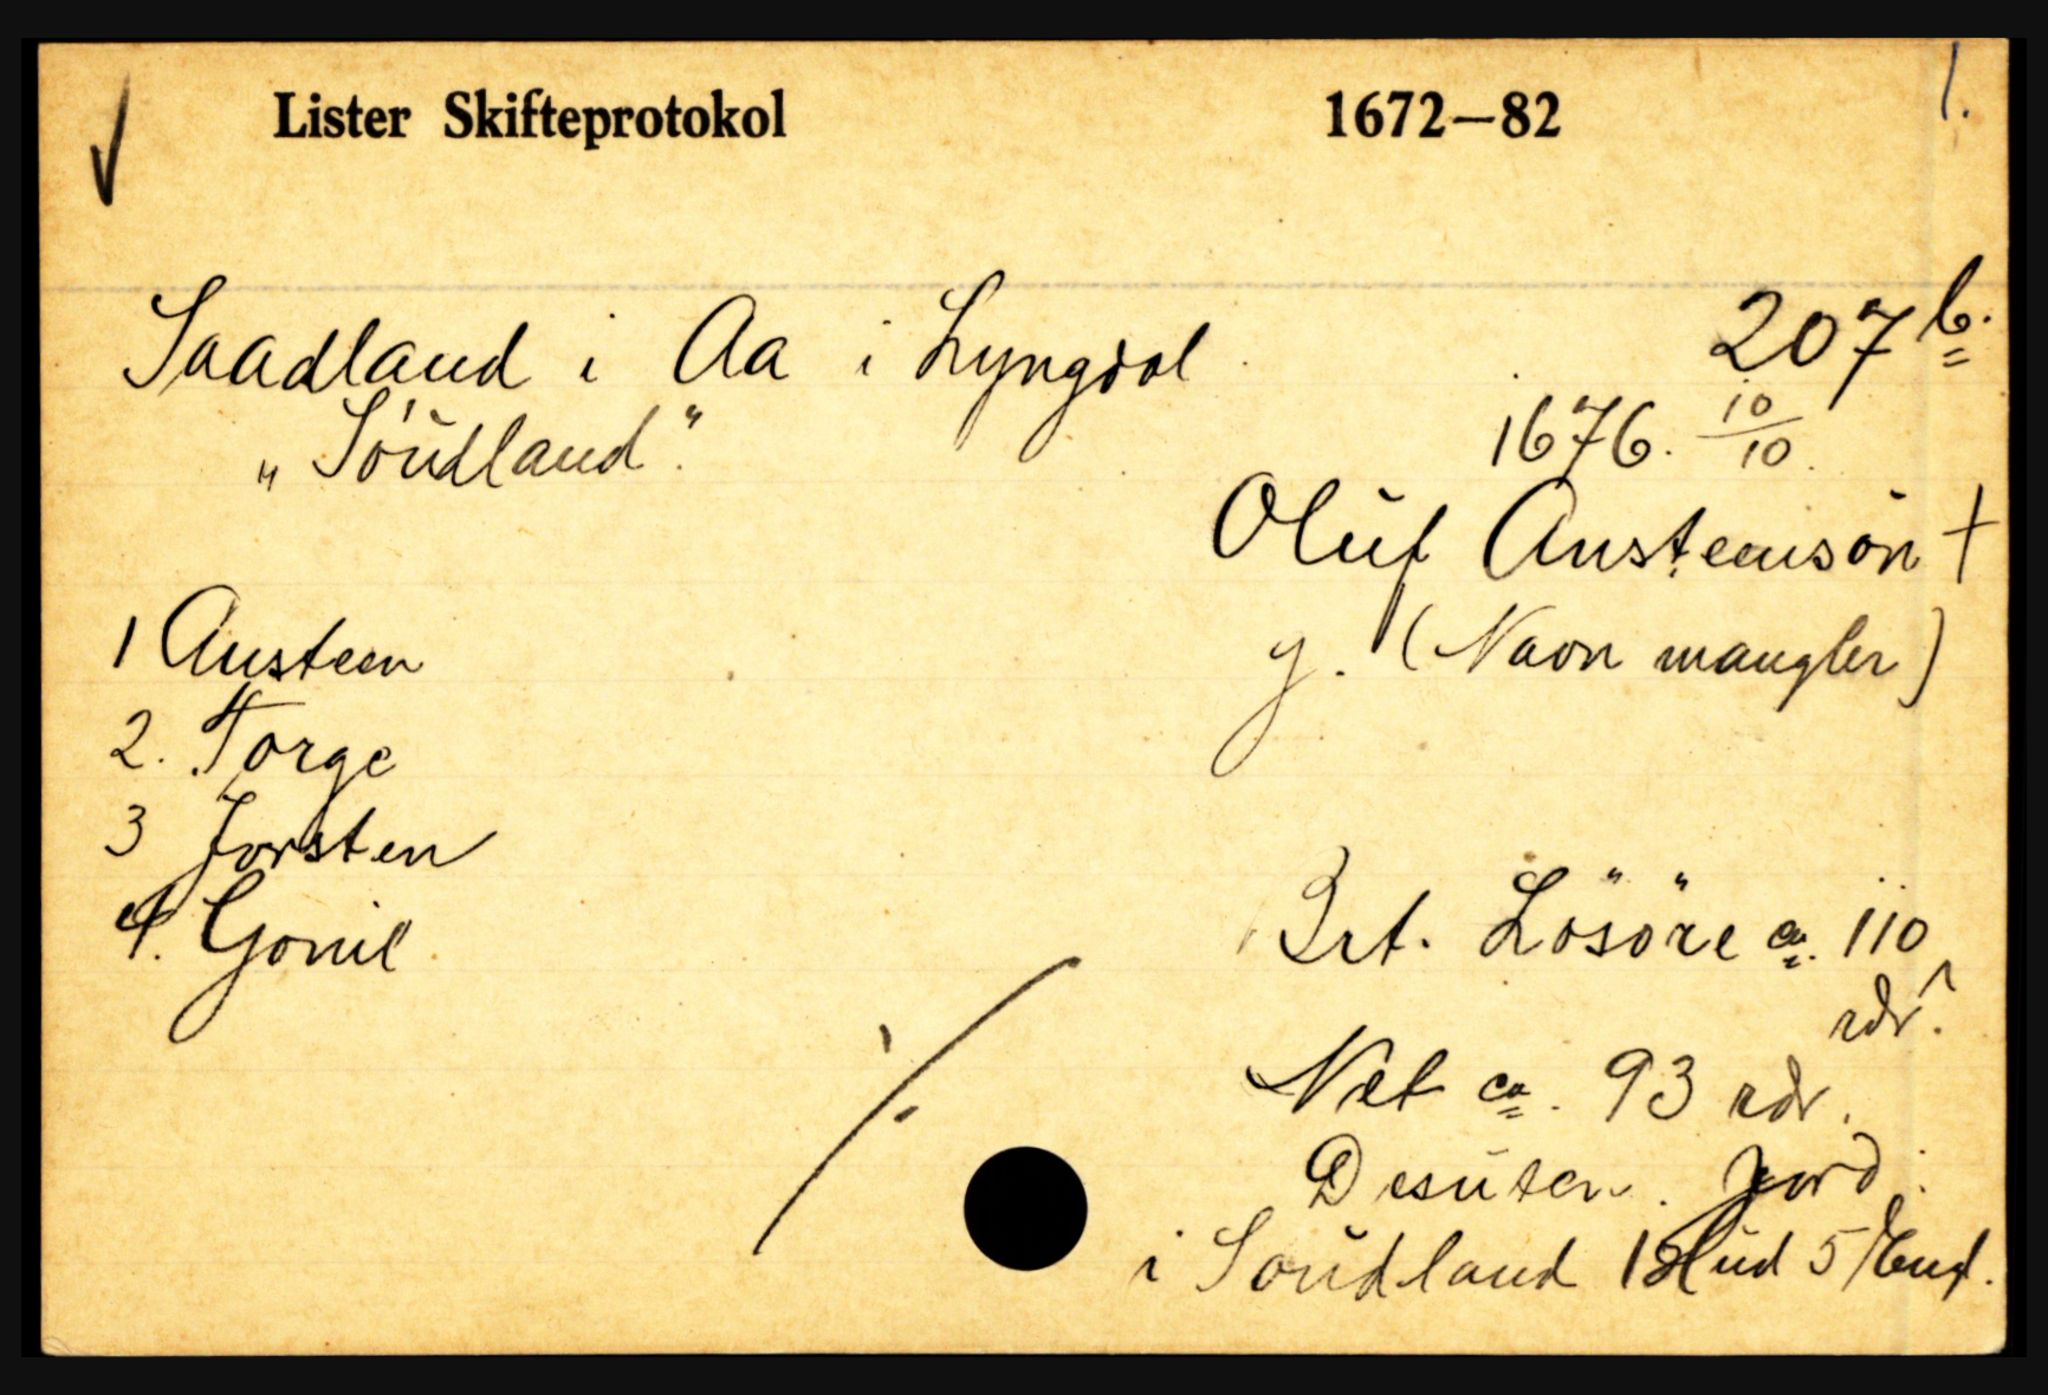 Lister Skifteprotokol 1672—82 1.
Saadland i Aa i Lyngdal 207 b.
„Soudland." 1676. 10/10.
Oluf Austeensøn †
1 Austeen g. (Navn mangler)
2. Torge
3 Torsten
4. Gonil Brt. Løsøre ca. 110
rdr.
Net ca. 93 rdr.
Desuten Jord:
i Soudland 1 Hud 5 Eng.